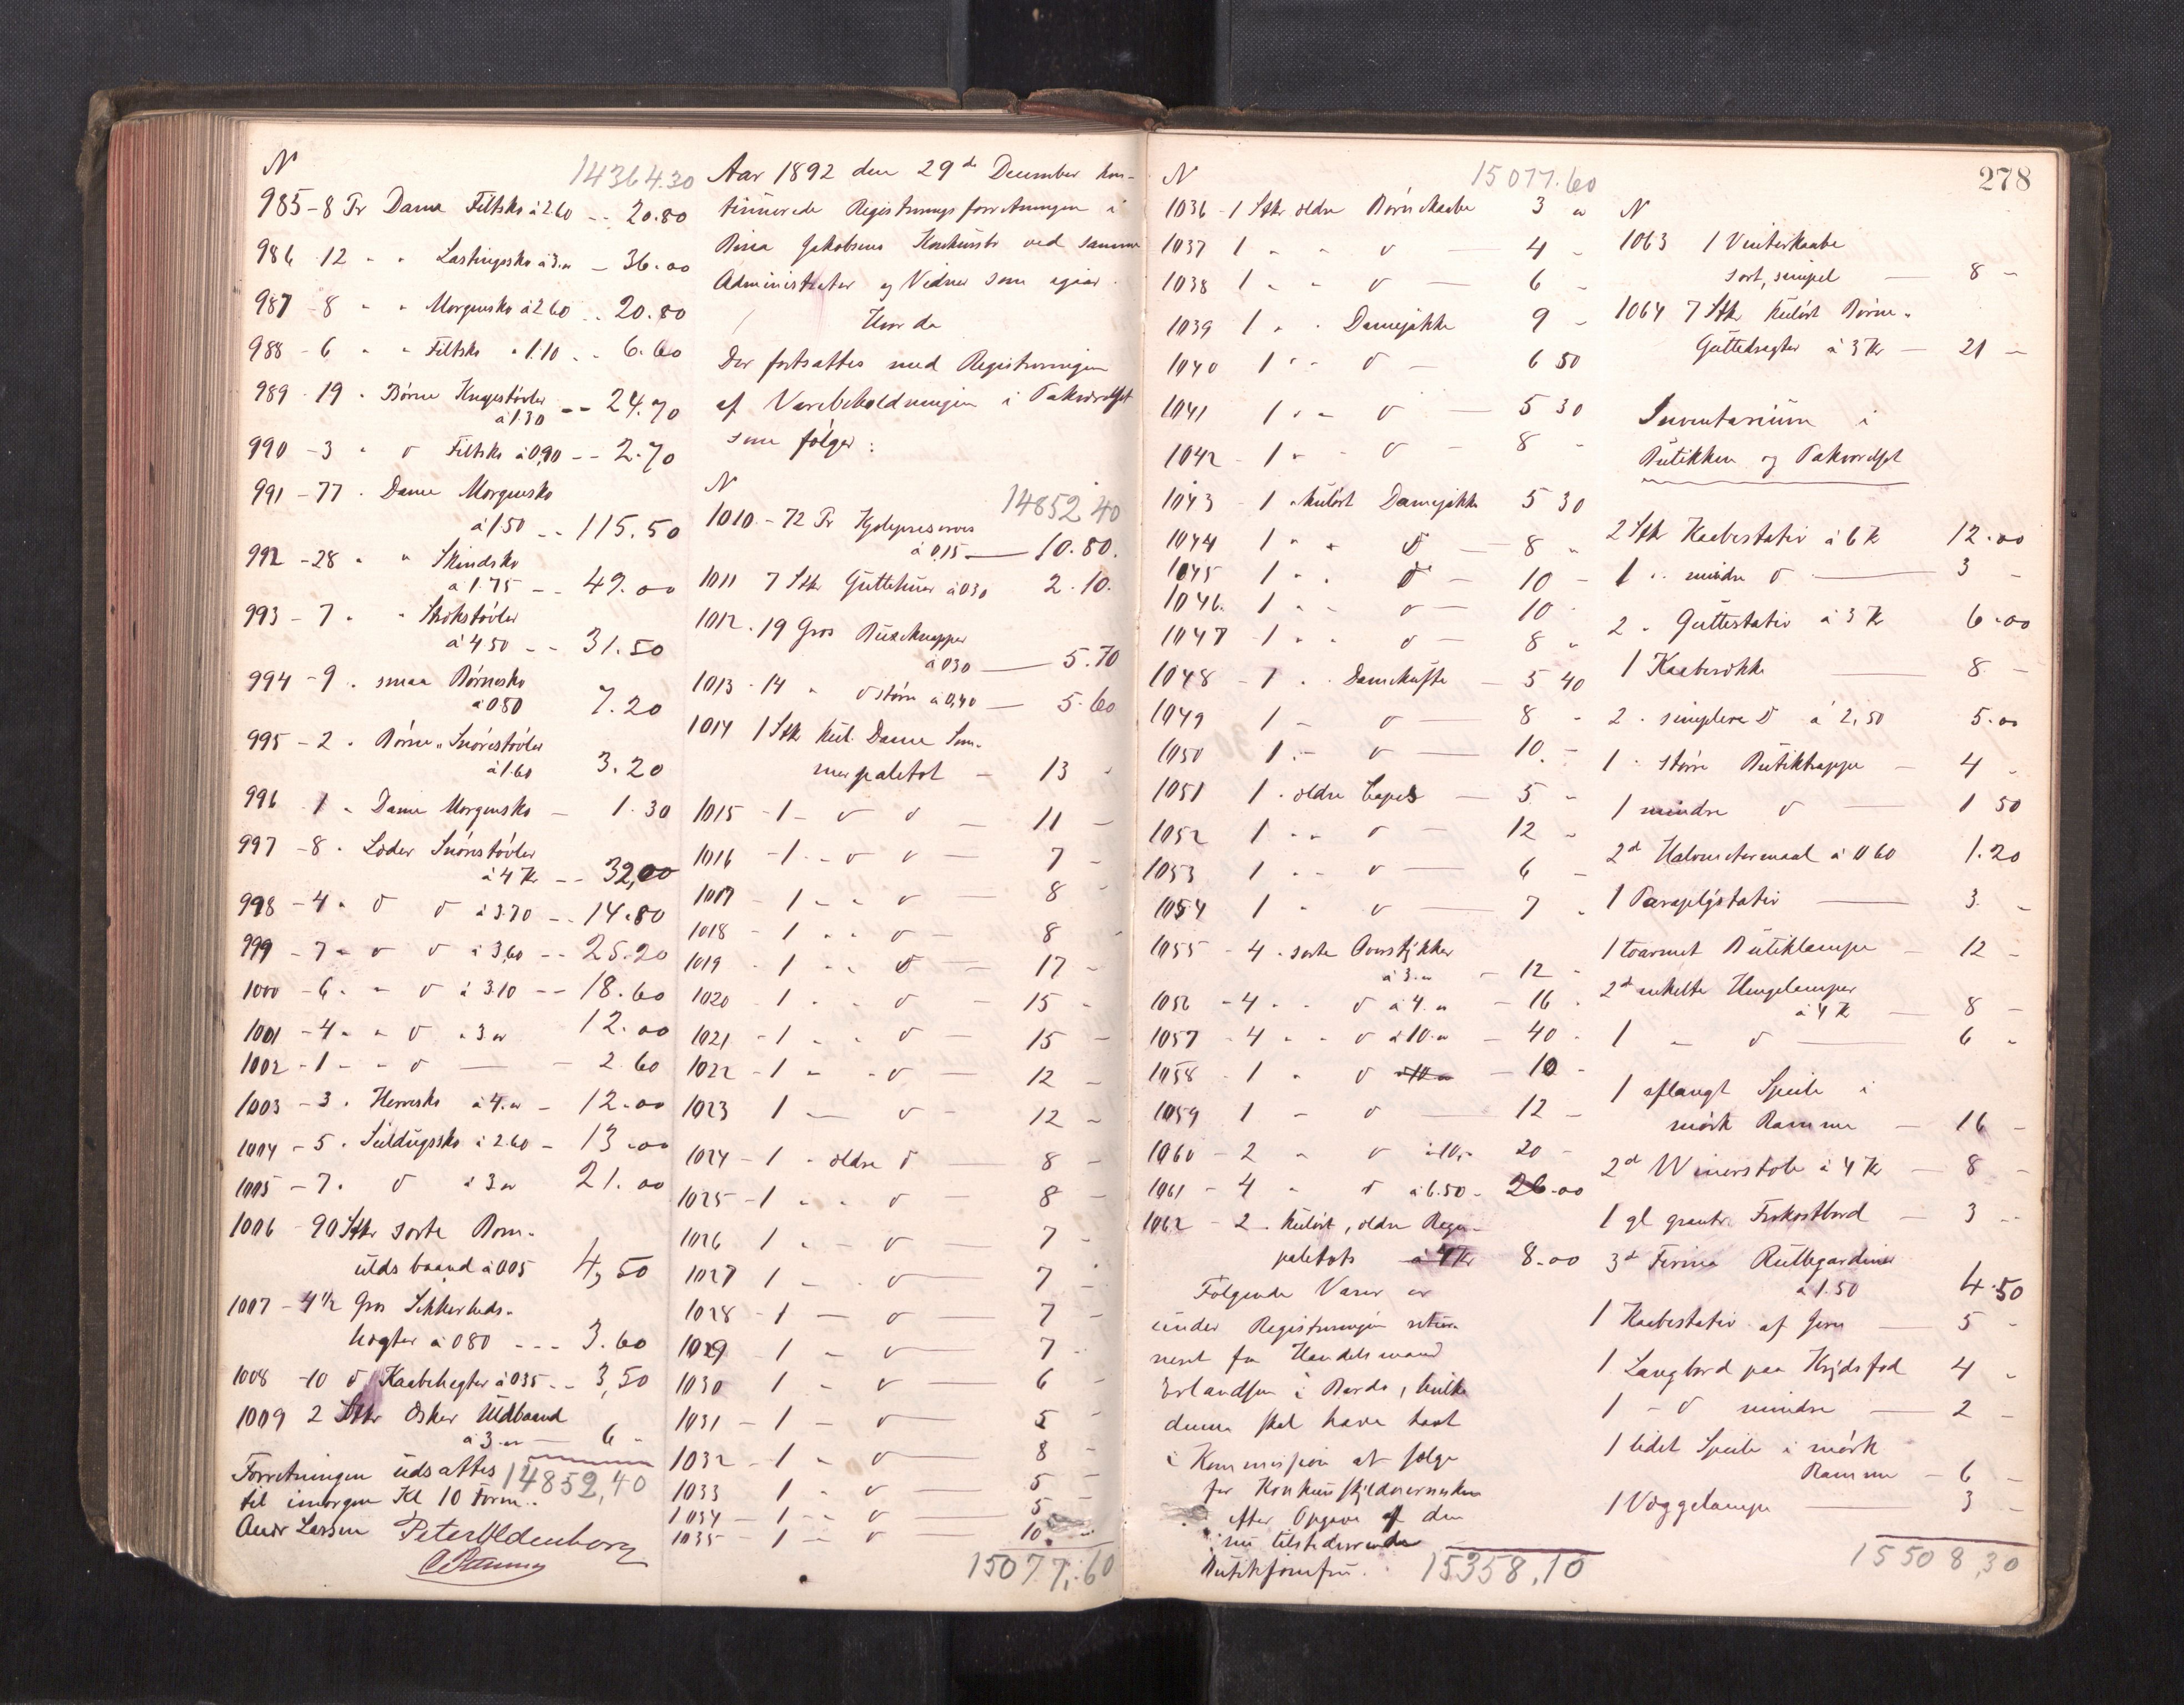 N
14364.30
985 - 8 Pr Dame Filtsko à 2.60 -- 20.80
986 12 " " Lastingssko à 3.00 - 36.00
987 - 8 " " Morgensko à 2.60 -- 20.80
988 - 6 " " Filtsko " 1.10 -- 6.60
989 - 19 " Børne Knapestøvler
à 1.30 -- 24.70
990 - 3 " d Filtsko à 0,90 -- 2.70
991 - 77 " Dame Morgensko
à 1.50 -- 115.50
992 - 28 " " Skindsko
à 1.75 -- 49.00
993 - 7 " " Strikstøvler
à 4.50 -- 31.50
994 - 9 " smaa Børnesko
à 0.80 7.20
995 - 2 " Børne Snørestøvler
à 1.60 3.20
996 1 " Dame Morgensko - 1.30
997 - 8 " Læder Snørestøvler
à 4 Kr -- 32,00
998 - 4 " d d à 3.70 -- 14.80
999 - 7 " d d à 3,60 -- 25.20
1000 - 6 " " d à 3.10 -- 18.60
1001 - 4 " " d à 3 00 12.00
1002 - 1 - - d - 2.60
1003 - 3 " Herresko à 4.00 - 12.00
1004 - 5 " Seildugssko à 2.60 - 13.00
1005 - 7 " d à 3 00 21.00
1006 - 90 Stkr sorte Bom-
ulds baand à 0.05 4,50
1007 - 4 1/2 Gros Sikkerheds-
hægter à 0.80 --- 3.60
1008 - 10 d Kaabehægter à 0.35 -- 3,50
1009 2 Stkr Æsker Uldbaand
à 3.00 6 -
Forretningen udsattes 14852,40
til imorgen Kl 10 Form.
Andr Larsen Peter Oldenborg

Aar 1892 den 29de December kon-
tinueredes Registreringsforretningen i
Bina Jakobsens Konkursbo ved samme
Administrator og Vidner som igaar.
Hvor da
Der fortsattes med Registreringen
af Varebeholdningen i Pakværelset
som følger:
N
14852.40
1010 - 72 Pr Kjolepreserves
à 0,15 — 10.80.
1011 7 Stkr Guttehuer à 0 30 2.10.
1012 - 19 Gros Buxeknapper
à 0 30 — 5.70
1013 - 14 " d større à 0,40 — 5.60
1014 1 Stkr kul. Dame Som-
merpaletot - 13 -
1015 - 1 - d d - 11 -
1016 - 1 - d d - 7 -
1017 - 1 - - d - 8 -
1018 - 1 - - d - 8 -
1019 - 1 - - d - 17 -
1020 - 1 - - d - 15 -
1021 - 1 - - d - 15 -
1022 - 1 - - d - 12 -
1023 1 - d - 12 -
1024 - 1 - ældre d - 8 -
1025 - 1 - - d - 8 -
1026 1 - - d - 7 -
1027 1 - - d - 7 -
1028 - 1 - d - 7 -
1029 - 1 - d - 7 -
1030 1 - d - 6 -
1031 - 1 - d - 5 -
1032 - 1 - d - 8 -
1033 1 - d - 5 -
1034 - 1 - - d - 5 -
1035 - 1 - d 10. -
15077,60

278
N
15077.60
1036 - 1 Stkr ældre Børnekaabe 3 00
1037 1 " " d - 4 -
1038 1 " " d - 6 -
1039 1 " " Damejakke 9 -
1040 1 " " d - 6 50
1041 1 " " d - 5 30
1042 - 1 " " d - 8 -
1043 - 1 " kulørt Damejakke 5 30
1044 1 " " d - 8 "
1045 1 " " d - 10 -
1046. 1 " " d - 10 -
1047 - 1 " " d - 8 "
1048 - 1 " " Damekufte - 5 40
1049 1 - d - 8 -
1050 1 - d - 10. -
1051 1 " ældre Capes - 5 -
1052 1 " " d - 12 -
1053 1 " " d - 6 -
1054 1 " d - 7 "
1055 - 4 " sorte Overstykker
à 3.00 - 12 -
1056 - 4 " " d à 4.00 - 16 -
1057 - 4 " " d à 10.00 - 40 -
1058 - 1 " d à 10 00 - 10 -
1059 1 - d - 12 -
1060 - 2 " d à 10,- 20 -
1061 - 4 " d à 6.50 - 26.00
1062 - 2 " kulørt, ældre Regn-
paletots à 4 Kr 8.00
Følgende Varer er
under Registreringen retur-
neret fra Handelsmand
Erlandsen i Bardo, hvilke
denne skal have havt
i Kommission at sælge
for Konkursskyldnersken
efter Opgave af den
nu tilstedeværende
Butikjomfru. 15358,10

N
1063 1 Vinterkaabe
sort, simpel — 8 -
1064 7 Stkr kulørt Børne-
Guttedragter à 3 Kr — 21 -
Inventarium i
Butikken og Pakværelset
2 Stk Kaabestativ à 6 Kr 12.00
1 " mindre d — 3 -
2 " Guttestativ à 3 Kr 6.00
1 Kaaberække 8 -
2 " simplere d à 2,50 5.00
1 " større Butiktrappe — 4 -
1 mindre d — 1 50
2d Halvmetermaal à 0 60 1.20
1 Paraplystativ — 3 -
1 toarmet Butiklampe — 12 -
2d enkelte Hængelamper
à 4 Kr — 8 -
1 - d — 6 "
1 aflangt Speile i
mørk Ramme — 16 -
2d Wienerstole à 4 Kr — 8 -
1 gl grantr. Frokostbord — 3 --
3d Firma Rullegardiner
à 1.50 4.50
1 Kaabestativ af Jern — 5 -
1 Langbord paa Krydsfod 4 "
1 - d mindre — 2 -
1 lidet Speile i mørk
Ramme - 6 -
1 Væggelampe — 3 -
15508,30